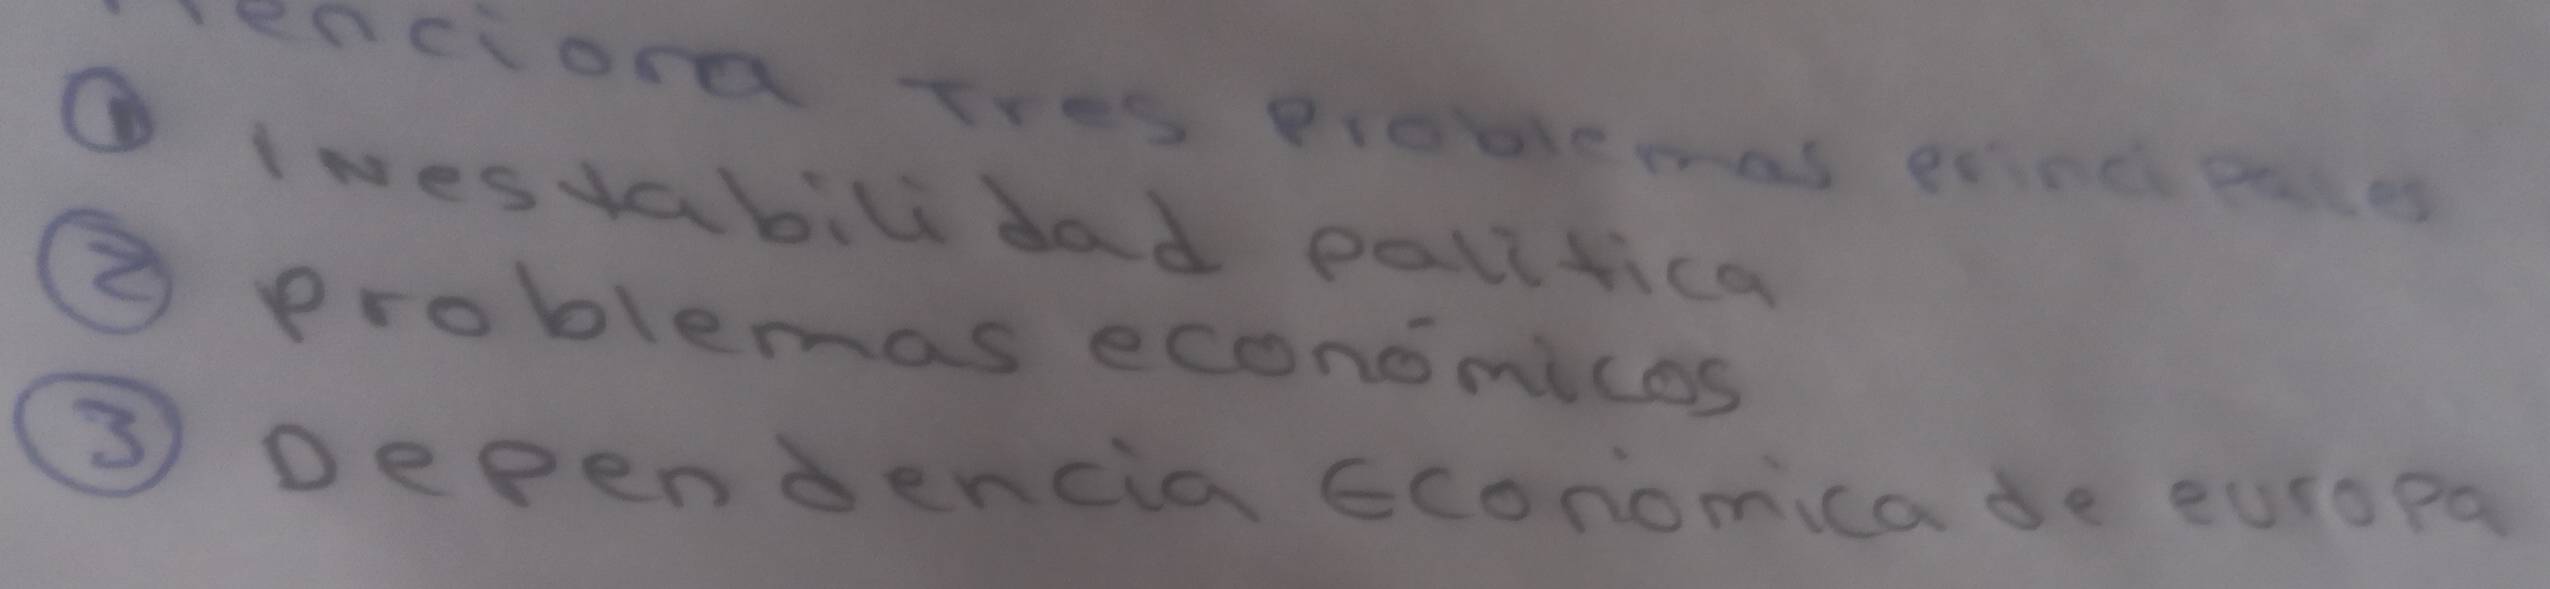 Menciona Tres Problemas principales
① Inestabilidad palítica
② Problemas económicos
③ Dependencia Económica de europa